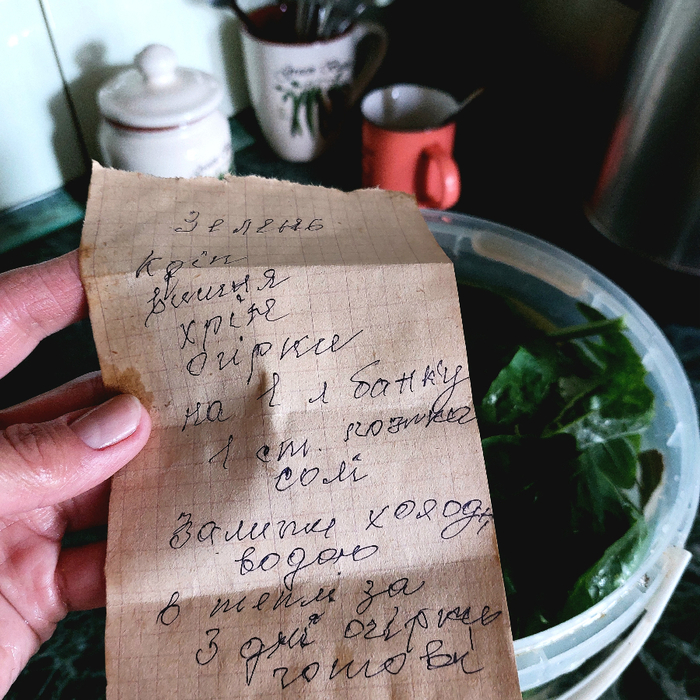 Зелень
кріп
вишня
хрін
огірки
на 1 л банку
1 ст. ложка
солі
Залити холодн
водою
в теплі за
3 дні огірки
готові